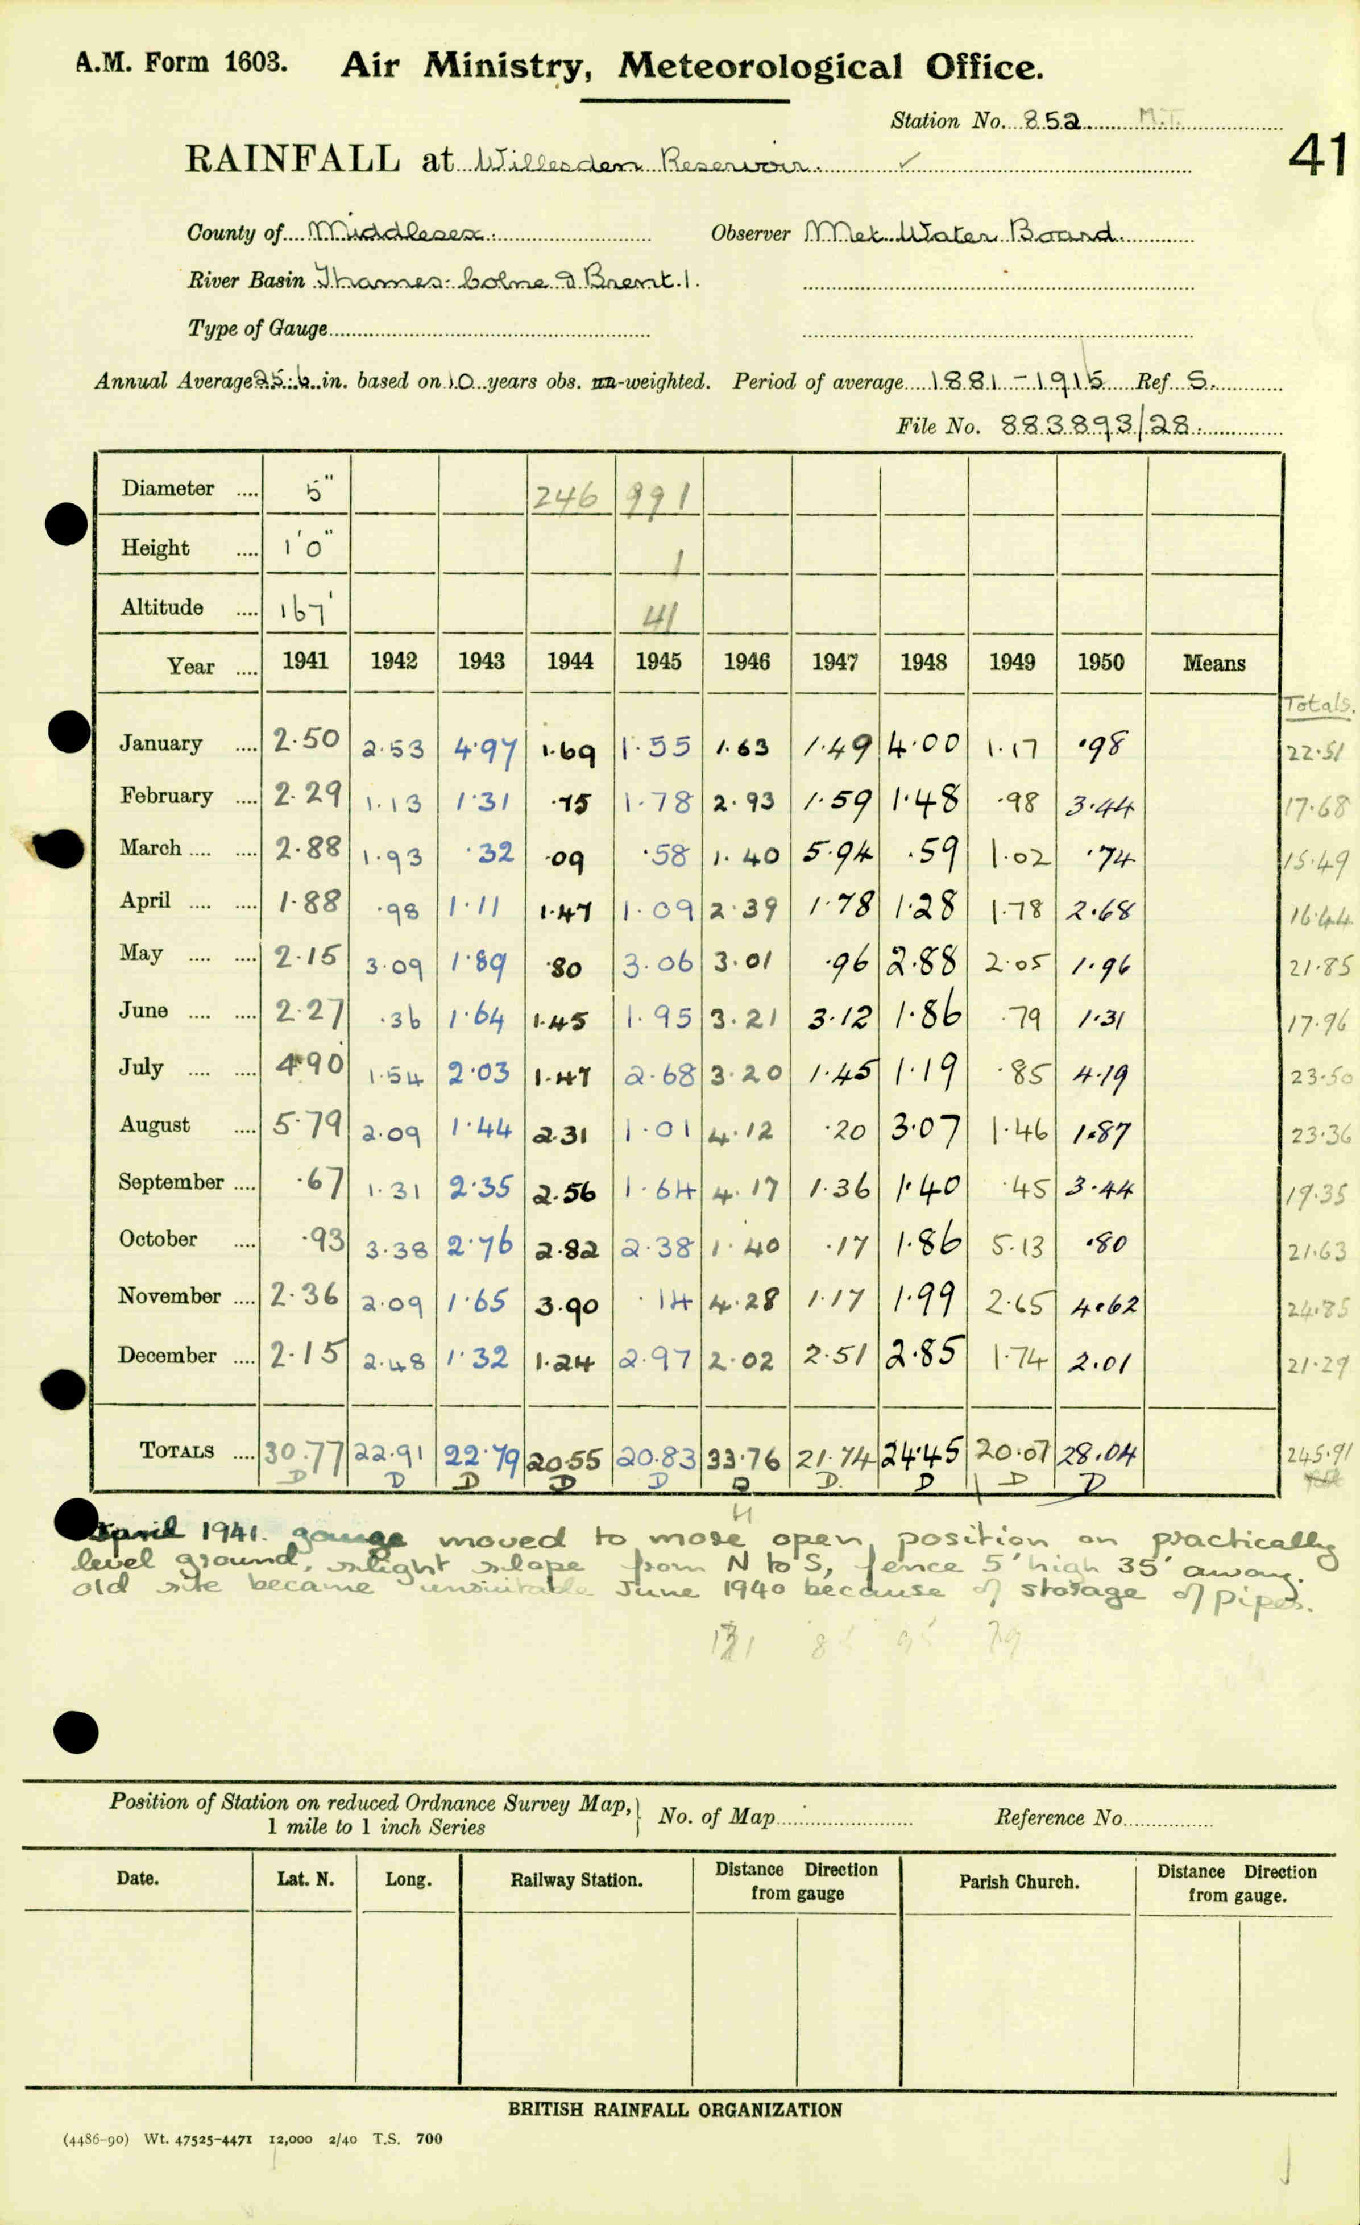 A.M. Form 1603. Air Ministry, Meteorological Office.
Station No. 852 M.T.
41
RAINFALL at Willesden Reservoir. ✓
County of Middlesex. Observer Met. Water Board.
River Basin Thames: Colne & Brent. 1.
Type of Gauge
Annual Average 25.6 in. based on 10 years obs. un-weighted. Period of average 1881-1915 Ref S.
File No. 883893/28
Diameter .... 5" 246 991
Height .... 1'0" 1
Altitude .... 167' 41
Year .... 1941 1942 1943 1944 1945 1946 1947 1948 1949 1950 Means
Totals.
January .... 2.50 2.53 4.97 1.69 1.55 1.63 1.49 4.00 1.17 .98 22.51
February .... 2.29 1.13 1.31 .75 1.78 2.93 1.59 1.48 .98 3.44 17.68
March .... .... 2.88 1.93 .32 .09 .58 1.40 5.94 .59 1.02 .74 15.49
April .... .... 1.88 .98 1.11 1.47 1.09 2.39 1.78 1.28 1.78 2.68 16.44
May .... .... 2.15 3.09 1.89 .80 3.06 3.01 .96 2.88 2.05 1.96 21.85
June .... .... 2.27 .36 1.64 1.45 1.95 3.21 3.12 1.86 .79 1.31 17.96
July .... .... 4.90 1.54 2.03 1.47 2.68 3.20 1.45 1.19 .85 4.19 23.50
August .... 5.79 2.09 1.44 2.31 1.01 4.12 .20 3.07 1.46 1.87 23.36
September .... .67 1.31 2.35 2.56 1.64 4.17 1.36 1.40 .45 3.44 19.35
October .... .93 3.38 2.76 2.82 2.38 1.40 .17 1.86 5.13 .80 21.63
November .... 2.36 2.09 1.65 3.90 .14 4.28 1.17 1.99 2.65 4.62 24.85
December .... 2.15 2.48 1.32 1.24 2.97 2.02 2.51 2.85 1.74 2.01 21.29
TOTALS .... 30.77 22.91 22.79 20.55 20.83 33.76 21.74 24.45 20.07 28.04 245.91
D D D D D D D. D D D
April 1941. gauge moved to more open position on practically
level ground, slight slope from N to S, fence 5' high 35' away.
old site became unsuitable June 1940 because of storage of pipes.
Position of Station on reduced Ordnance Survey Map,
1 mile to 1 inch Series
No. of Map
Reference No.
Date. Lat. N. Long. Railway Station. Distance Direction from gauge Parish Church. Distance Direction from gauge.
BRITISH RAINFALL ORGANIZATION
(4486-90) Wt. 47525-4471 12,000 2/40 T.S. 700